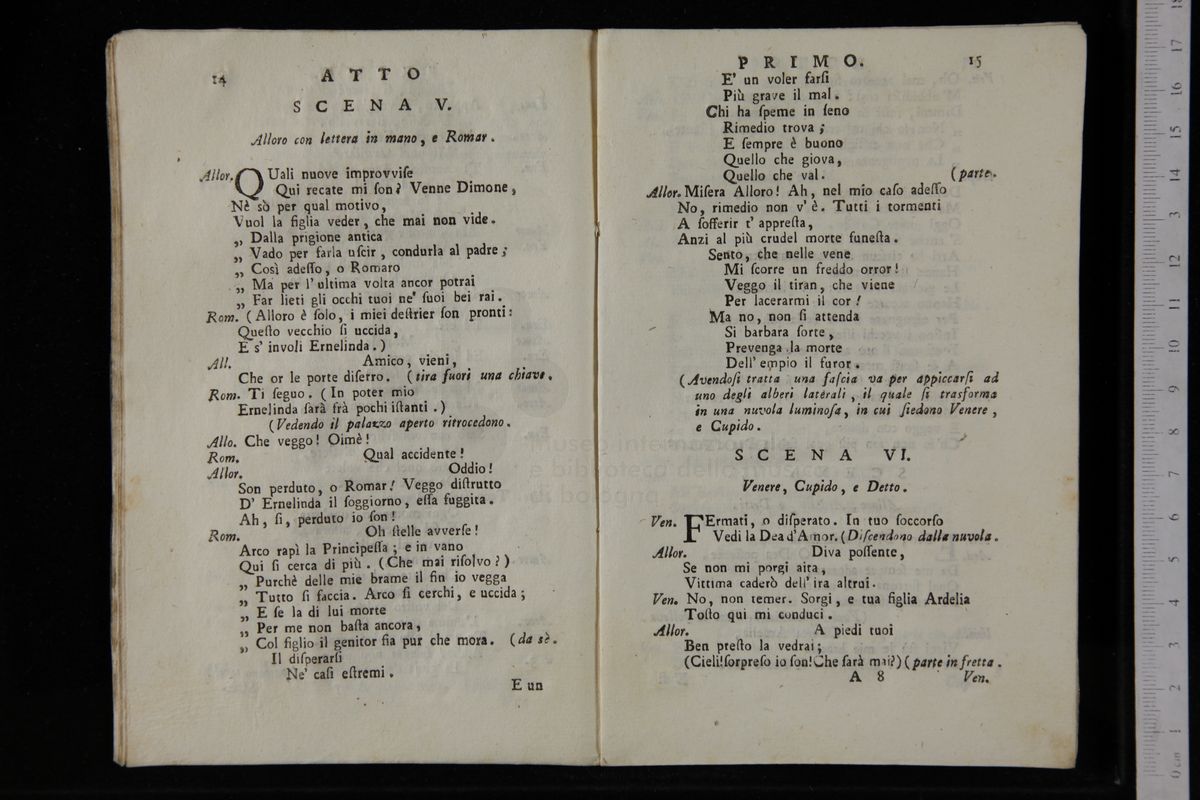 14 ATTO
SCENA V.
Alloro con lettera in mano, e Romar.
Allor. QUali nuove improvviſe
Qui recate mi ſon? Venne Dimone,
Nè sò per qual motivo,
Vuol la figlia veder, che mai non vide.
„ Dalla prigione antica
„ Vado per farla uſcir, condurla al padre;
„ Così adeſſo, o Romaro
„ Ma per l'ultima volta ancor potrai
„ Far lieti gli occhi tuoi ne' ſuoi bei rai.
Rom. (Alloro è ſolo, i miei deſtrier ſon pronti:
Queſto vecchio ſi uccida,
E s' involi Ernelinda.)
All. Amico, vieni,
Che or le porte diſerro. (tira fuori una chiave.
Rom. Ti ſeguo. (In poter mio
Ernelinda ſarà frà pochi iſtanti.)
(Vedendo il palazzo aperto ritrocedono.
Allo. Che veggo! Oimè!
Rom. Qual accidente!
Allor. Oddio!
Son perduto, o Romar! Veggo diſtrutto
D' Ernelinda il ſoggiorno, eſſa fuggita.
Ah, ſi, perduto io ſon!
Rom. Oh ſtelle avverſe!
Arco rapì la Principeſſa; e in vano
Qui ſi cerca di più. (Che mai riſolvo?)
„ Purchè delle mie brame il fin io vegga
„ Tutto ſi faccia. Arco ſi cerchi, e uccida;
„ E ſe la di lui morte
„ Per me non baſta ancora,
„ Col figlio il genitor ſia pur che mora. (da sè.
Il diſperarſi
Ne' caſi eſtremi.
E un
PRIMO. 15
E' un voler farſi
Più grave il mal.
Chi ha ſpeme in ſeno
Rimedio trova;
E ſempre è buono
Quello che giova,
Quello che val. (parte.
Allor. Miſera Alloro! Ah, nel mio caſo adeſſo
No, rimedio non v' è. Tutti i tormenti
A ſofferir t' appreſta,
Anzi al più crudel morte funeſta.
Sento, che nelle vene
Mi ſcorre un freddo orror!
Veggo il tiran, che viene
Per lacerarmi il cor!
Ma no, non ſi attenda
Si barbara ſorte,
Prevenga la morte
Dell' empio il furor.
(Avendoſi tratta una faſcia va per appiccarſi ad
uno degli alberi laterali, il quale ſi trasforma
in una nuvola luminoſa, in cui ſiedono Venere,
e Cupido.
SCENA VI.
Venere, Cupido, e Detto.
Ven. FErmati, o diſperato. In tuo ſoccorſo
Vedi la Dea d'Amor. (Diſcendono dalla nuvola.
Allor. Diva poſſente,
Se non mi porgi aita,
Vittima caderò dell' ira altrui.
Ven. No, non temer. Sorgi, e tua figlia Ardelia
Toſto qui mi conduci.
Allor. A piedi tuoi
Ben preſto la vedrai;
(Cieli! ſorpreſo io ſon! Che ſarà mai?) (parte in fretta.
A 8 Ven.
museo internazionale
e biblioteca della musica
di bologna